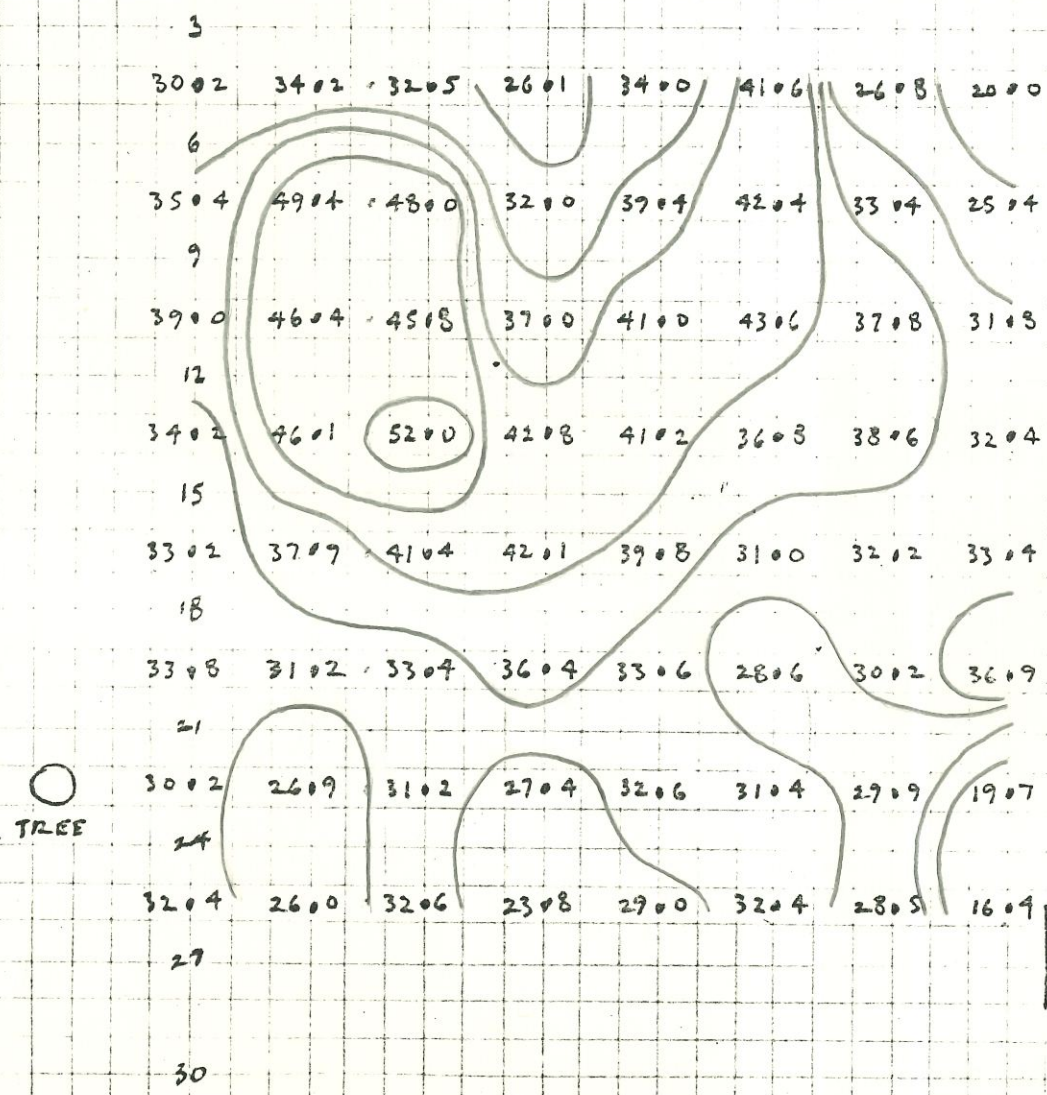 3
30.2 34.2 32.5 26.1 34.0 41.6 26.8 20.0
6
35.4 49.4 48.0 32.0 39.4 42.4 33.4 25.4
9
39.0 46.4 45.8 37.0 41.0 43.6 37.8 31.8
12
34.2 46.1 52.0 42.8 41.2 36.8 38.6 32.4
15
33.2 37.9 41.4 42.1 39.8 31.0 32.2 33.4
18
33.8 31.2 33.4 36.4 33.6 28.6 30.2 36.9
21
30.2 26.9 31.2 27.4 32.6 31.4 29.9 19.7
TREE
24
32.4 26.0 32.6 23.8 29.0 32.4 28.5 16.4
27
30